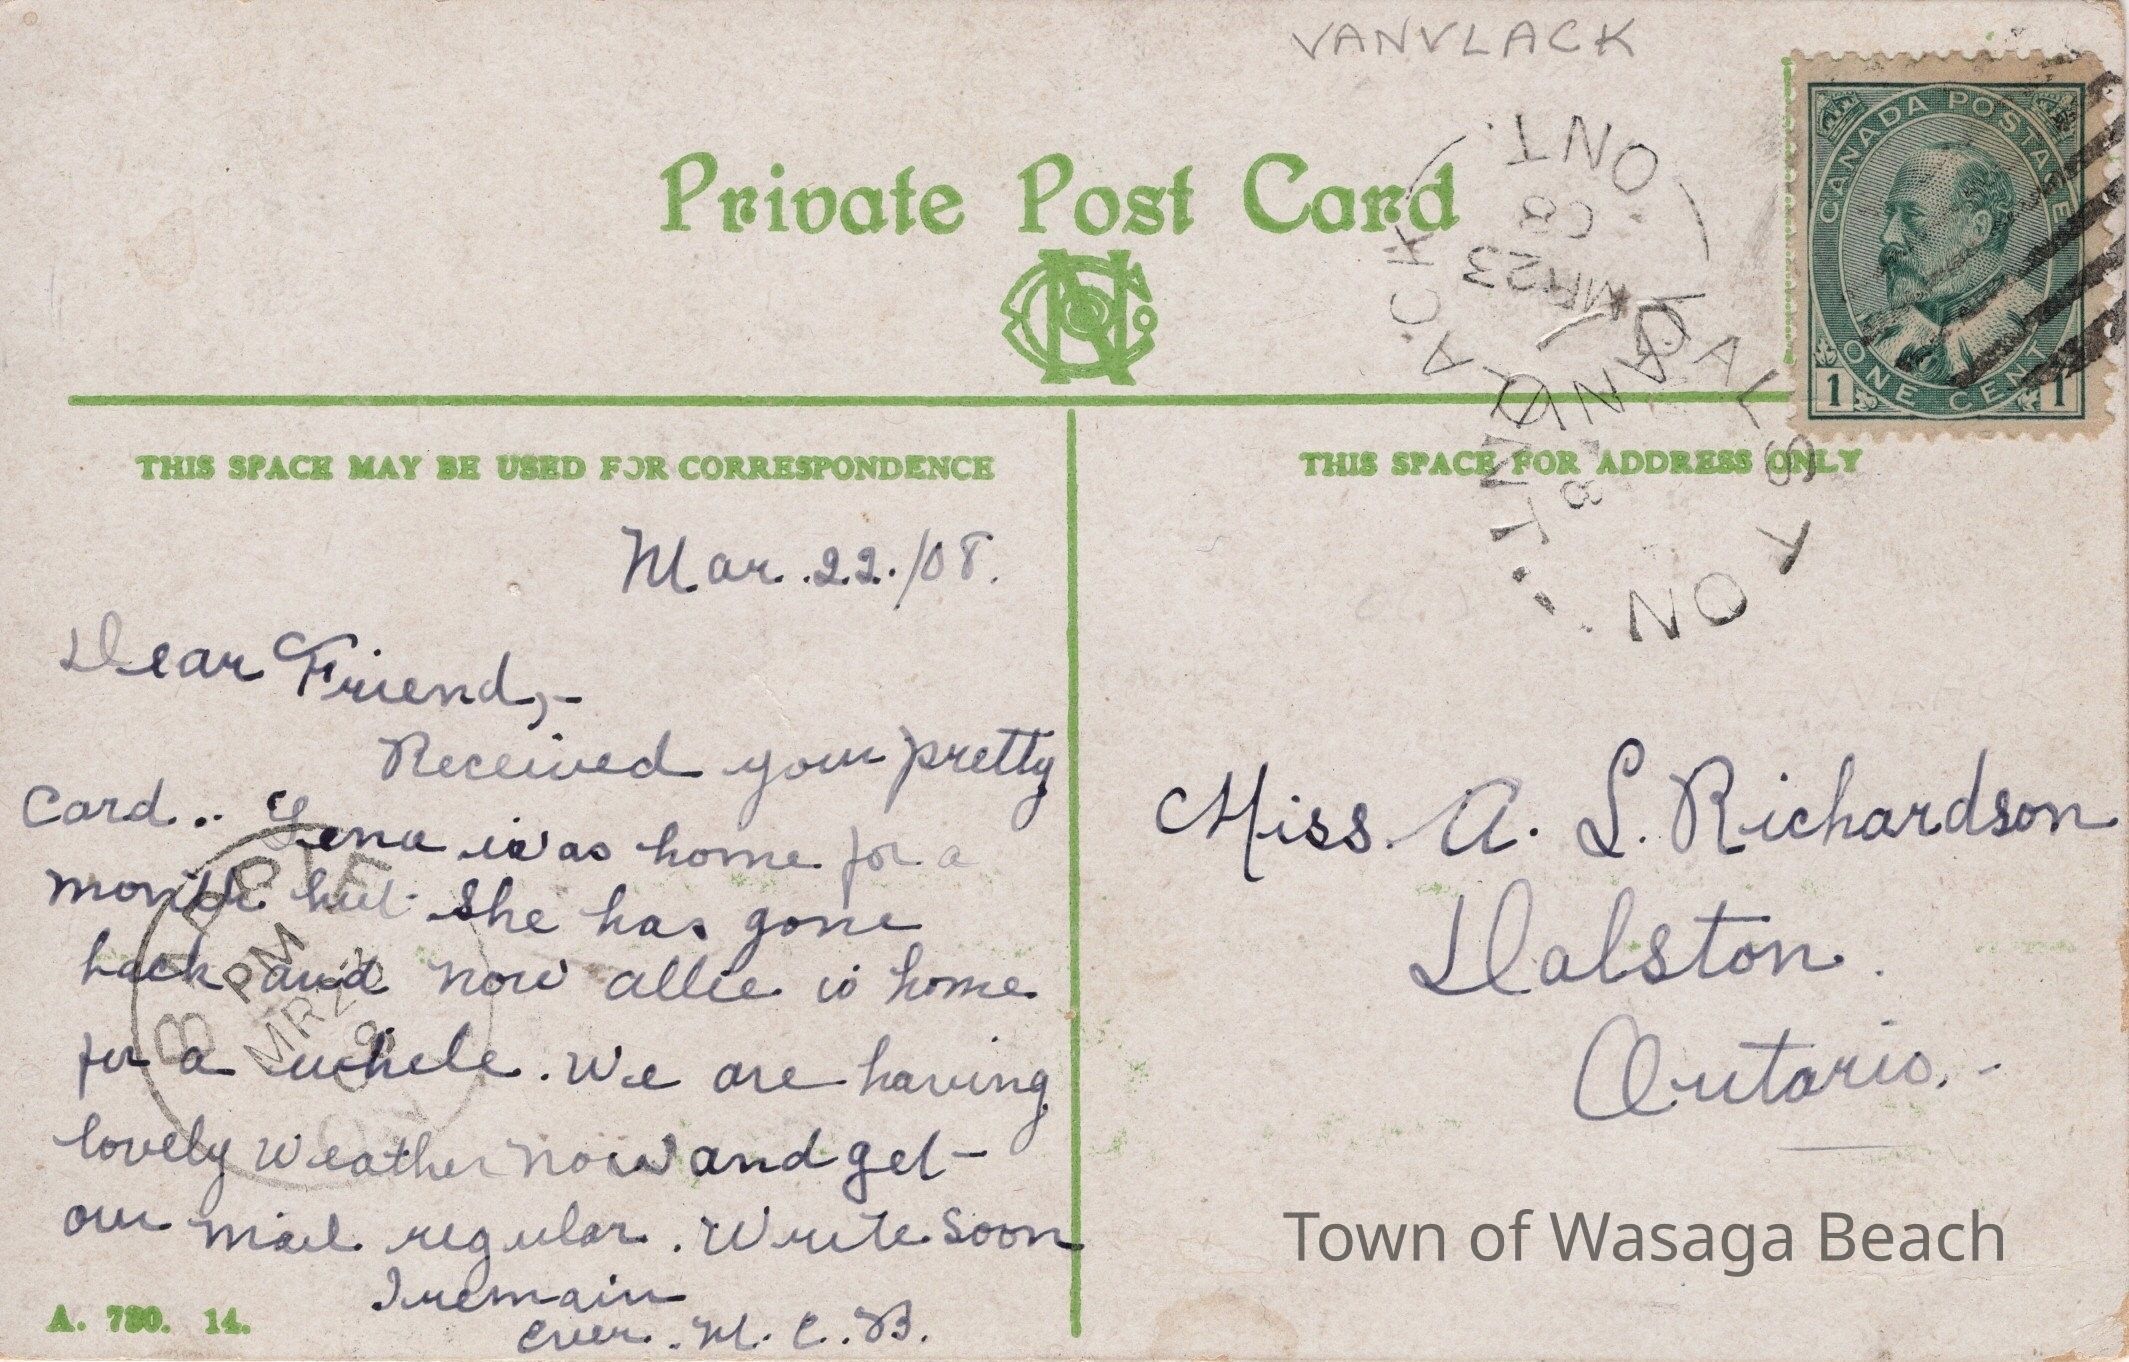 VANVLACK
Private Post Card
CANADA POSTAGE
ONE CENT
1 1
VANVLACK
ONT.
MR 23
08
DALSTON
ONT.
THIS SPACE MAY BE USED FOR CORRESPONDENCE
THIS SPACE FOR ADDRESS ONLY
Mar. 22./08.
Dear Friend,-
Received your pretty
Card.. Lena was home for a
month but she has gone
back and now allie is home
for a while. We are having
lovely weather now and get-
our mail regular. Write soon
I remain
ever. M. C. B.
BARRIE
PM
MR 23
Miss. A. L. Richardson
Dalston.
Ontario.-
Town of Wasaga Beach
A. 780. 14.